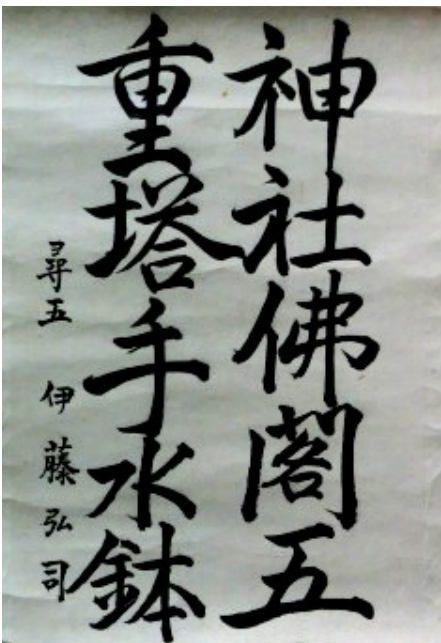 神社佛閣五
重塔手水鉢
尋五 伊藤弘司